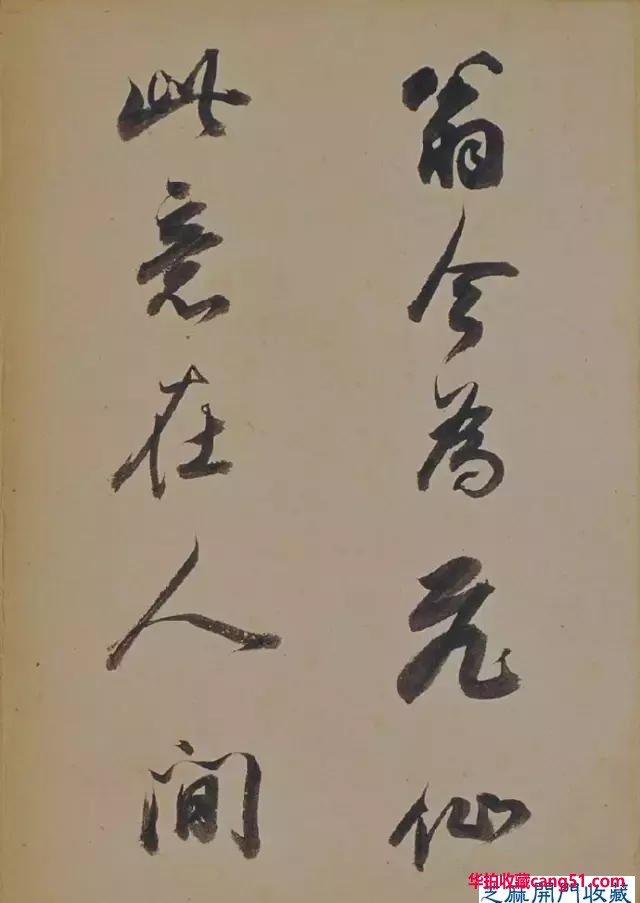 翁今為飛仙
此意在人間
华拍收藏cang51.com
芝麻開門收藏